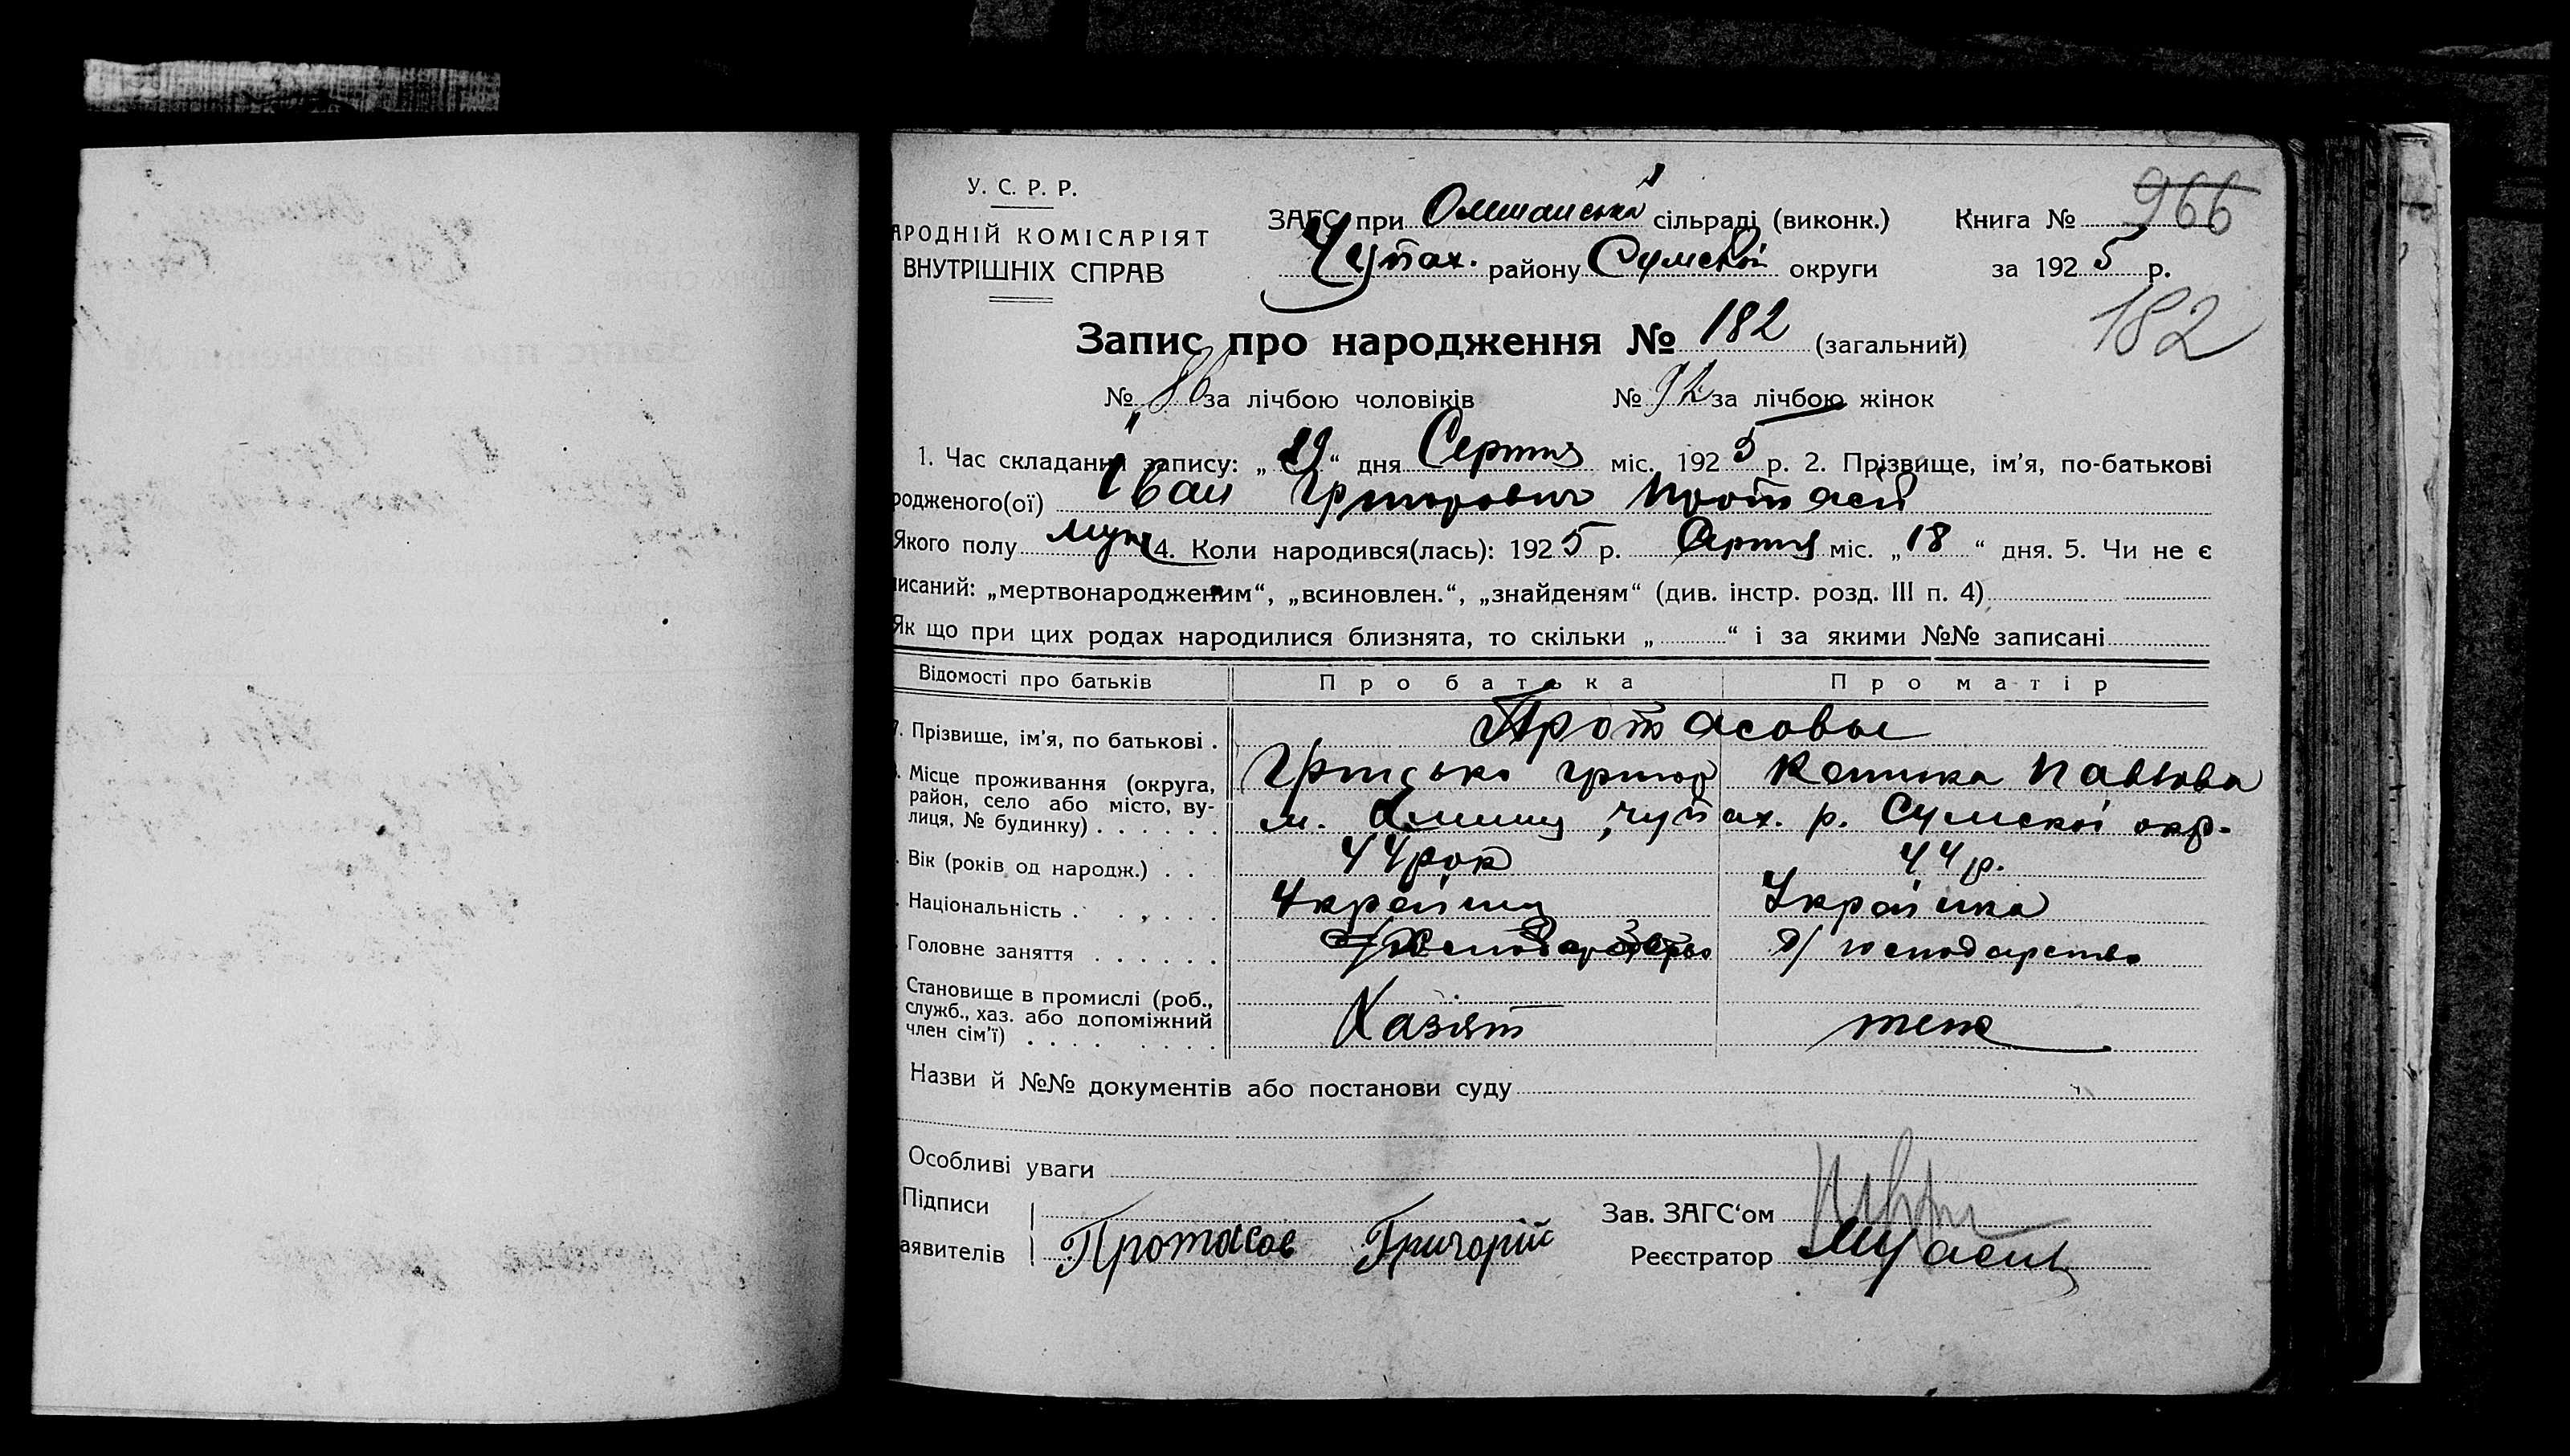 У. С. Р. Р.
АРОДНІЙ КОМІСАРІЯТ
ВНУТРІШНІХ СПРАВ
ЗАГС при сільраді (виконк.)
Чупах. району Сумской округи
Книга № 966
за 1925 р.
182
Запис про народження № 182 (загальний)
№ за лічбою чоловіків № за лічбою жінок
1. Час складання запису: „ “ дня Серпня міс. 1925 р. 2. Прізвище, ім’я, по-батькові
родженого(ої) Іван Григорович
Якого полу муж 4. Коли народився(лась): 1925 р. Серпня міс. „18“ дня. 5. Чи не є
писаний: „мертвонародженим“, „всиновлен.“, „знайденям“ (див. інстр. розд. III п. 4)
Як що при цих родах народилися близнята, то скільки „ “ і за якими №№ записані
Відомості про батьків Про батька Про матір
7. Прізвище, ім’я, по батькові . Протасовы
Грицько Григор Павлова
Місце проживання (округа, район, село або місто, ву-
лиця, № будинку) . . . . . . м. чупах. р. Сумскої окр.
Вік (років од народж.) . . 44 рок 44 р.
Національність . . , . . . Українец Українка
Головне заняття . . . . . . господарство
Становище в промислі (роб.,
служб., хаз. або допоміжний
член сім’ї) . . . . . . . . Хазяін жена
Назви й №№ документів або постанови суду
Особливі уваги
Підписи
аявителів Протасов Григорій
Зав. ЗАГС‘ом
Реєстратор